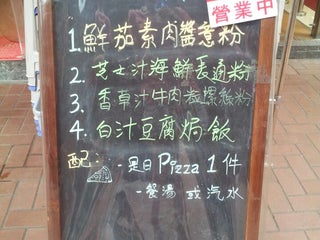 營業中
1.鮮茄素肉醬意粉
2.芝士汁海鮮長通粉
3.香草汁牛肉粒螺絲粉
4.白汁豆腐焗飯
配:-是日Pizza 1件
-餐湯 或 汽水